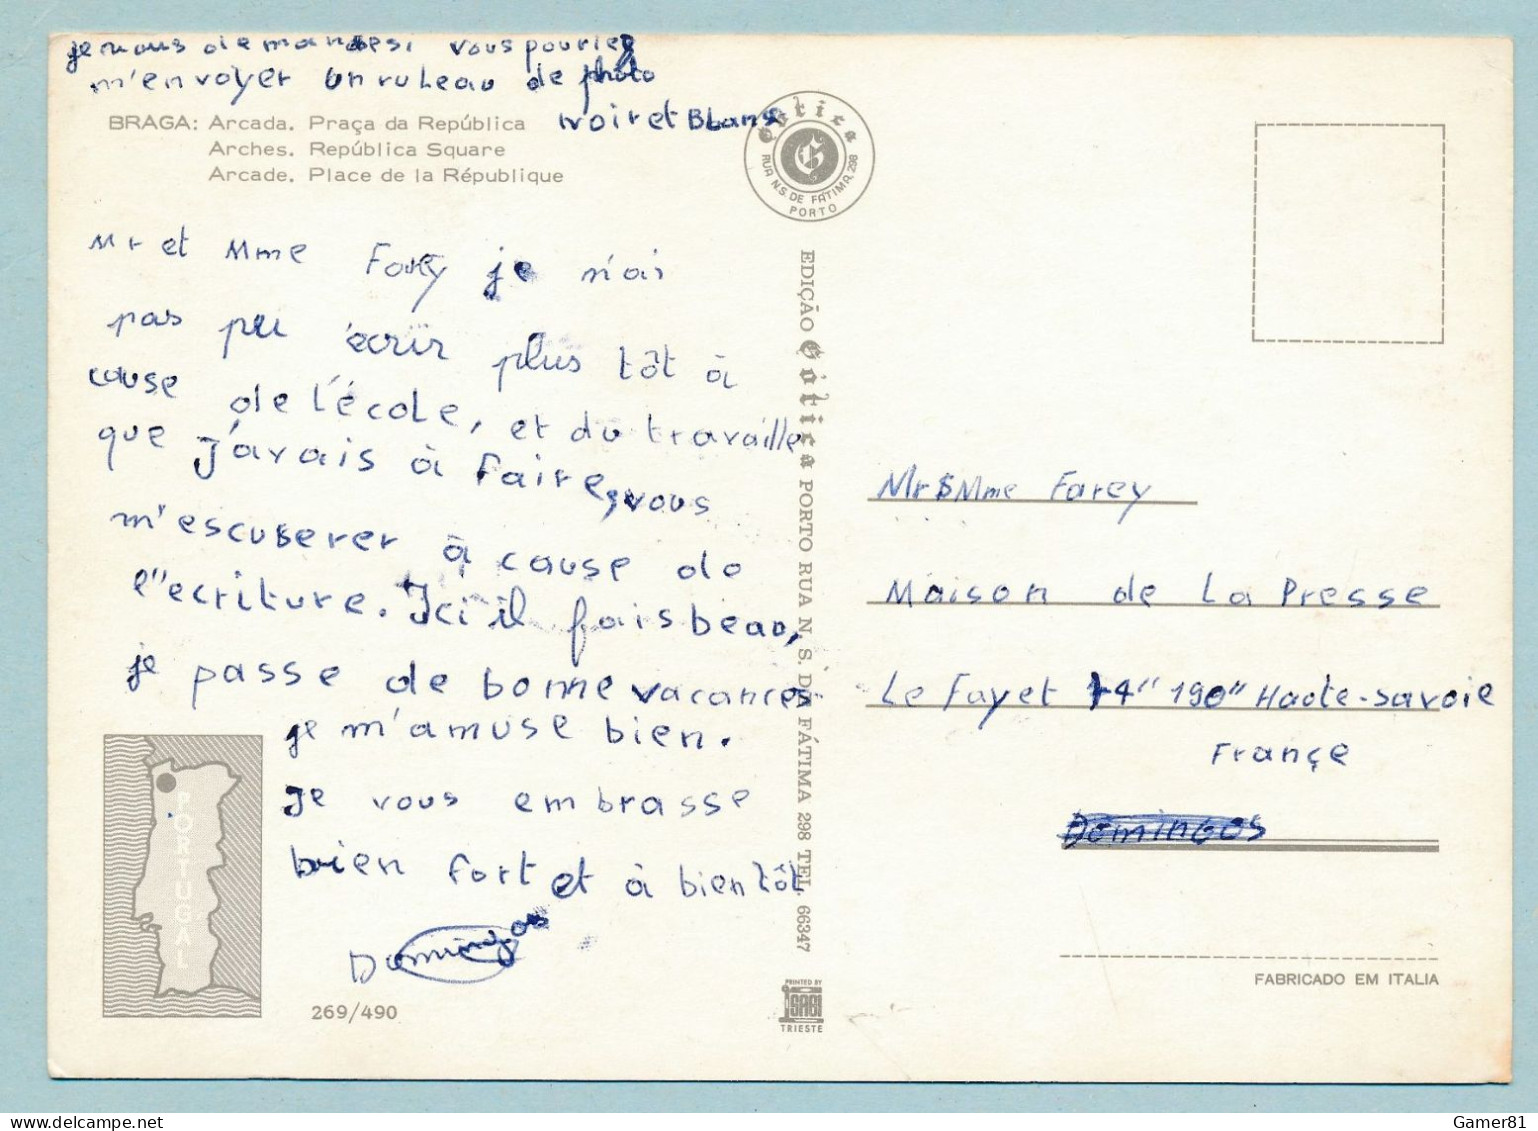 je vous demandesi vous pouriez
m'envoyer un ruleau de photo
noir et Blanc
BRAGA: Arcada. Praça da República
Arches. República Square
Arcade. Place de la République
Mr et Mme Farey je n'ai
pas pu écrir plus tôt à
cause de l'école, et du travaille
que j'avais à faire, vous
m'escuserer à cause de
l'ecriture. Ici il fais beau,
je passe de bonne vacances
je m'amuse bien.
Je vous embrasse
bien fort et à bientôt
Domingos
PORTUGAL
269/490
Gótica
RUA N.S. DE FÁTIMA, 298
PORTO
EDIÇÃO Gótica PORTO RUA N. S. DA FÁTIMA 298 TEL. 66347
PRINTED BY
SABI
TRIESTE
Mr & Mme Farey
Maison de La Presse
Le Fayet 74"190" Haute-Savoie
Françe
Domingos
FABRICADO EM ITALIA
Gamer81